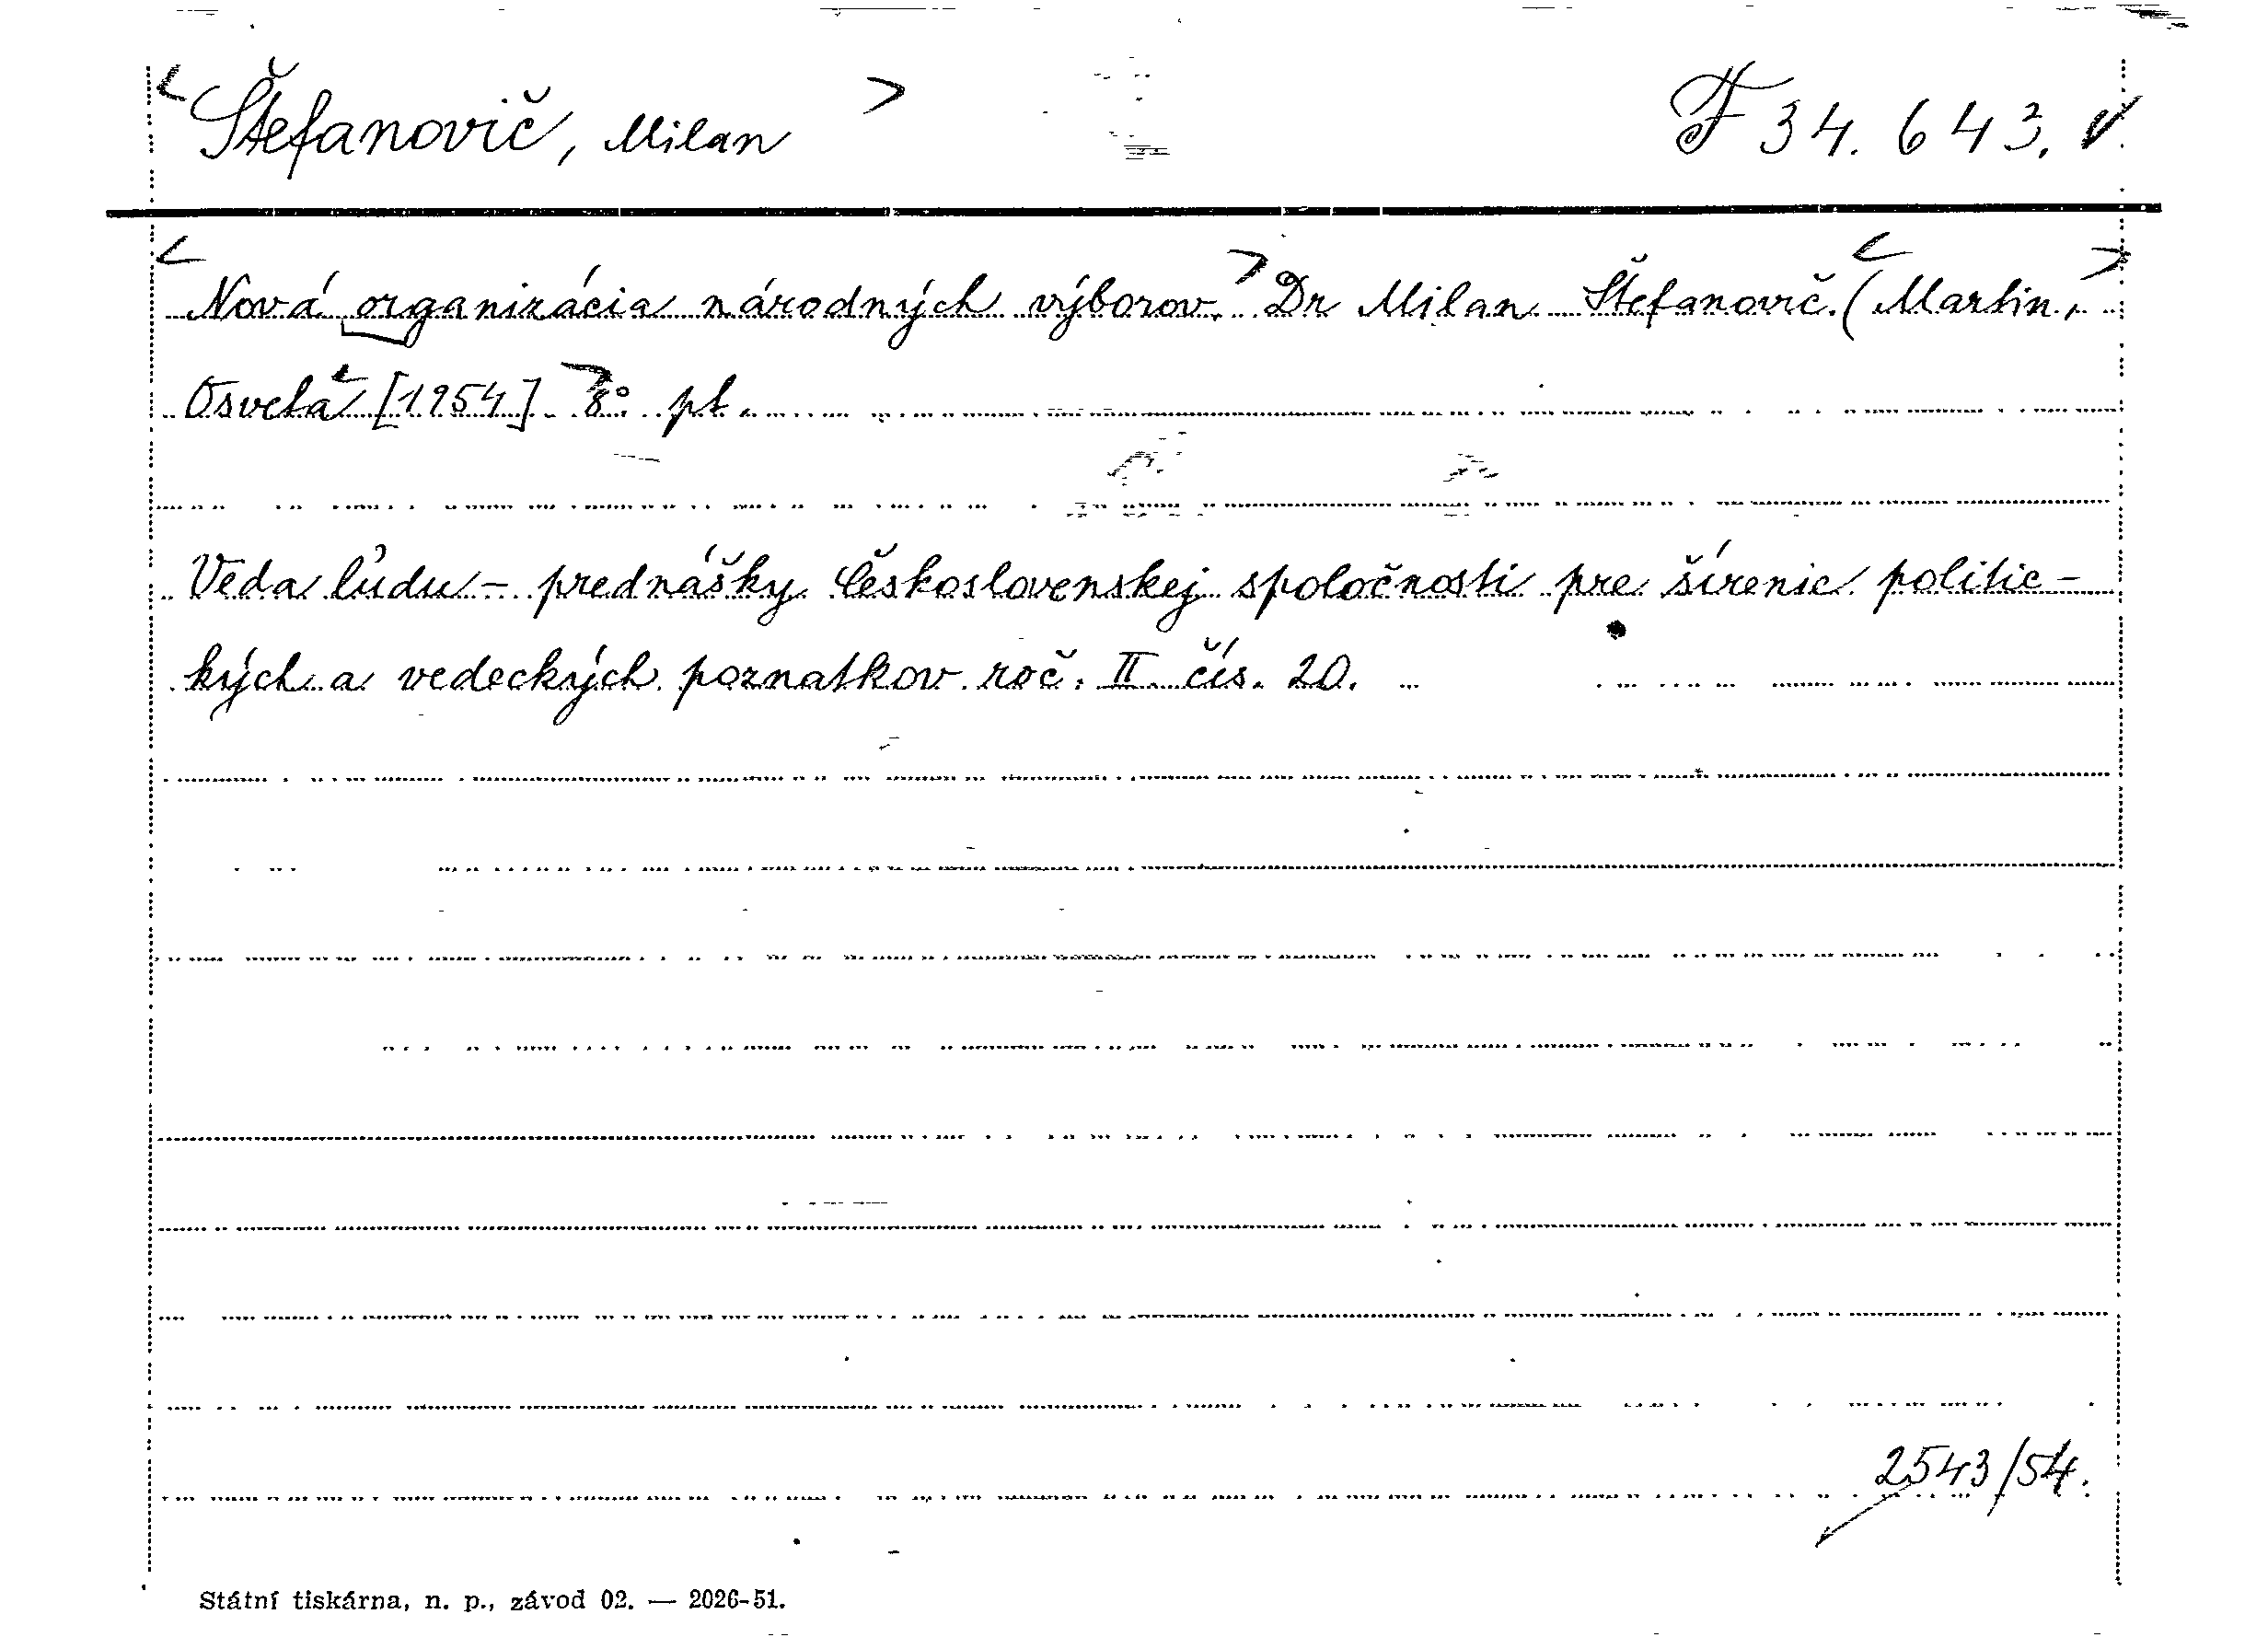 Štefanovič, Milan F 34.643. V
Nová organizácia národných výborov. Dr Milan Štefanovič. (Martin,
Osveta [1954] 8° pt.
Veda ľudu - prednášky Československej spoločnosti pre šírenie politic-
kých a vedeckých poznatkov roč. II. čís. 20.
2543/54.
Státní tiskárna, n. p., závod 02. — 2026-51.